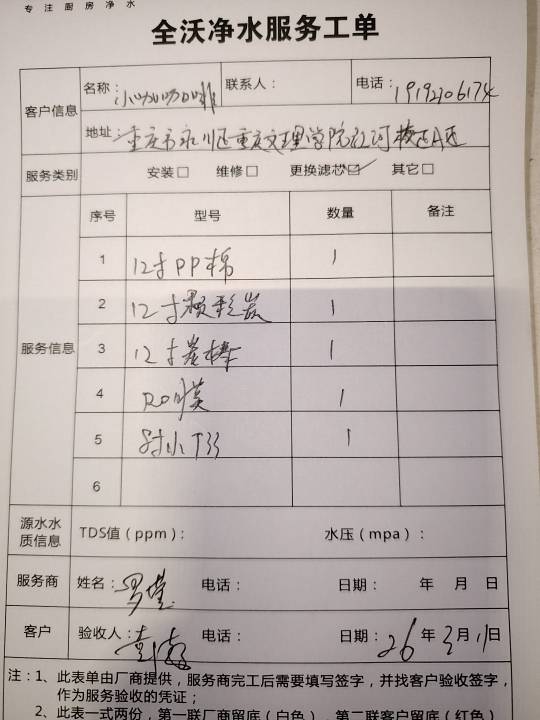 专注厨房净水
全沃净水服务工单
客户信息
名称：小咖咖啡 联系人： 电话：19192306174
地址：重庆市永川区重庆文理学院红河校区A区
服务类别 安装□ 维修□ 更换滤芯☑ 其它□
服务信息
序号 型号 数量 备注
1 12寸PP棉 1
2 12寸颗粒炭 1
3 12寸炭棒 1
4 RO膜 1
5 T33 1
6
源水水质信息 TDS值（ppm）： 水压（mpa）：
服务商 姓名： 电话： 日期： 年 月 日
客户 验收人： 电话： 日期：26年3月11日
注：1、此表单由厂商提供，服务商完工后需要填写签字，并找客户验收签字，
作为服务验收的凭证；
2、此表一式两份，第一联厂商留底（白色），第二联客户留底（红色）